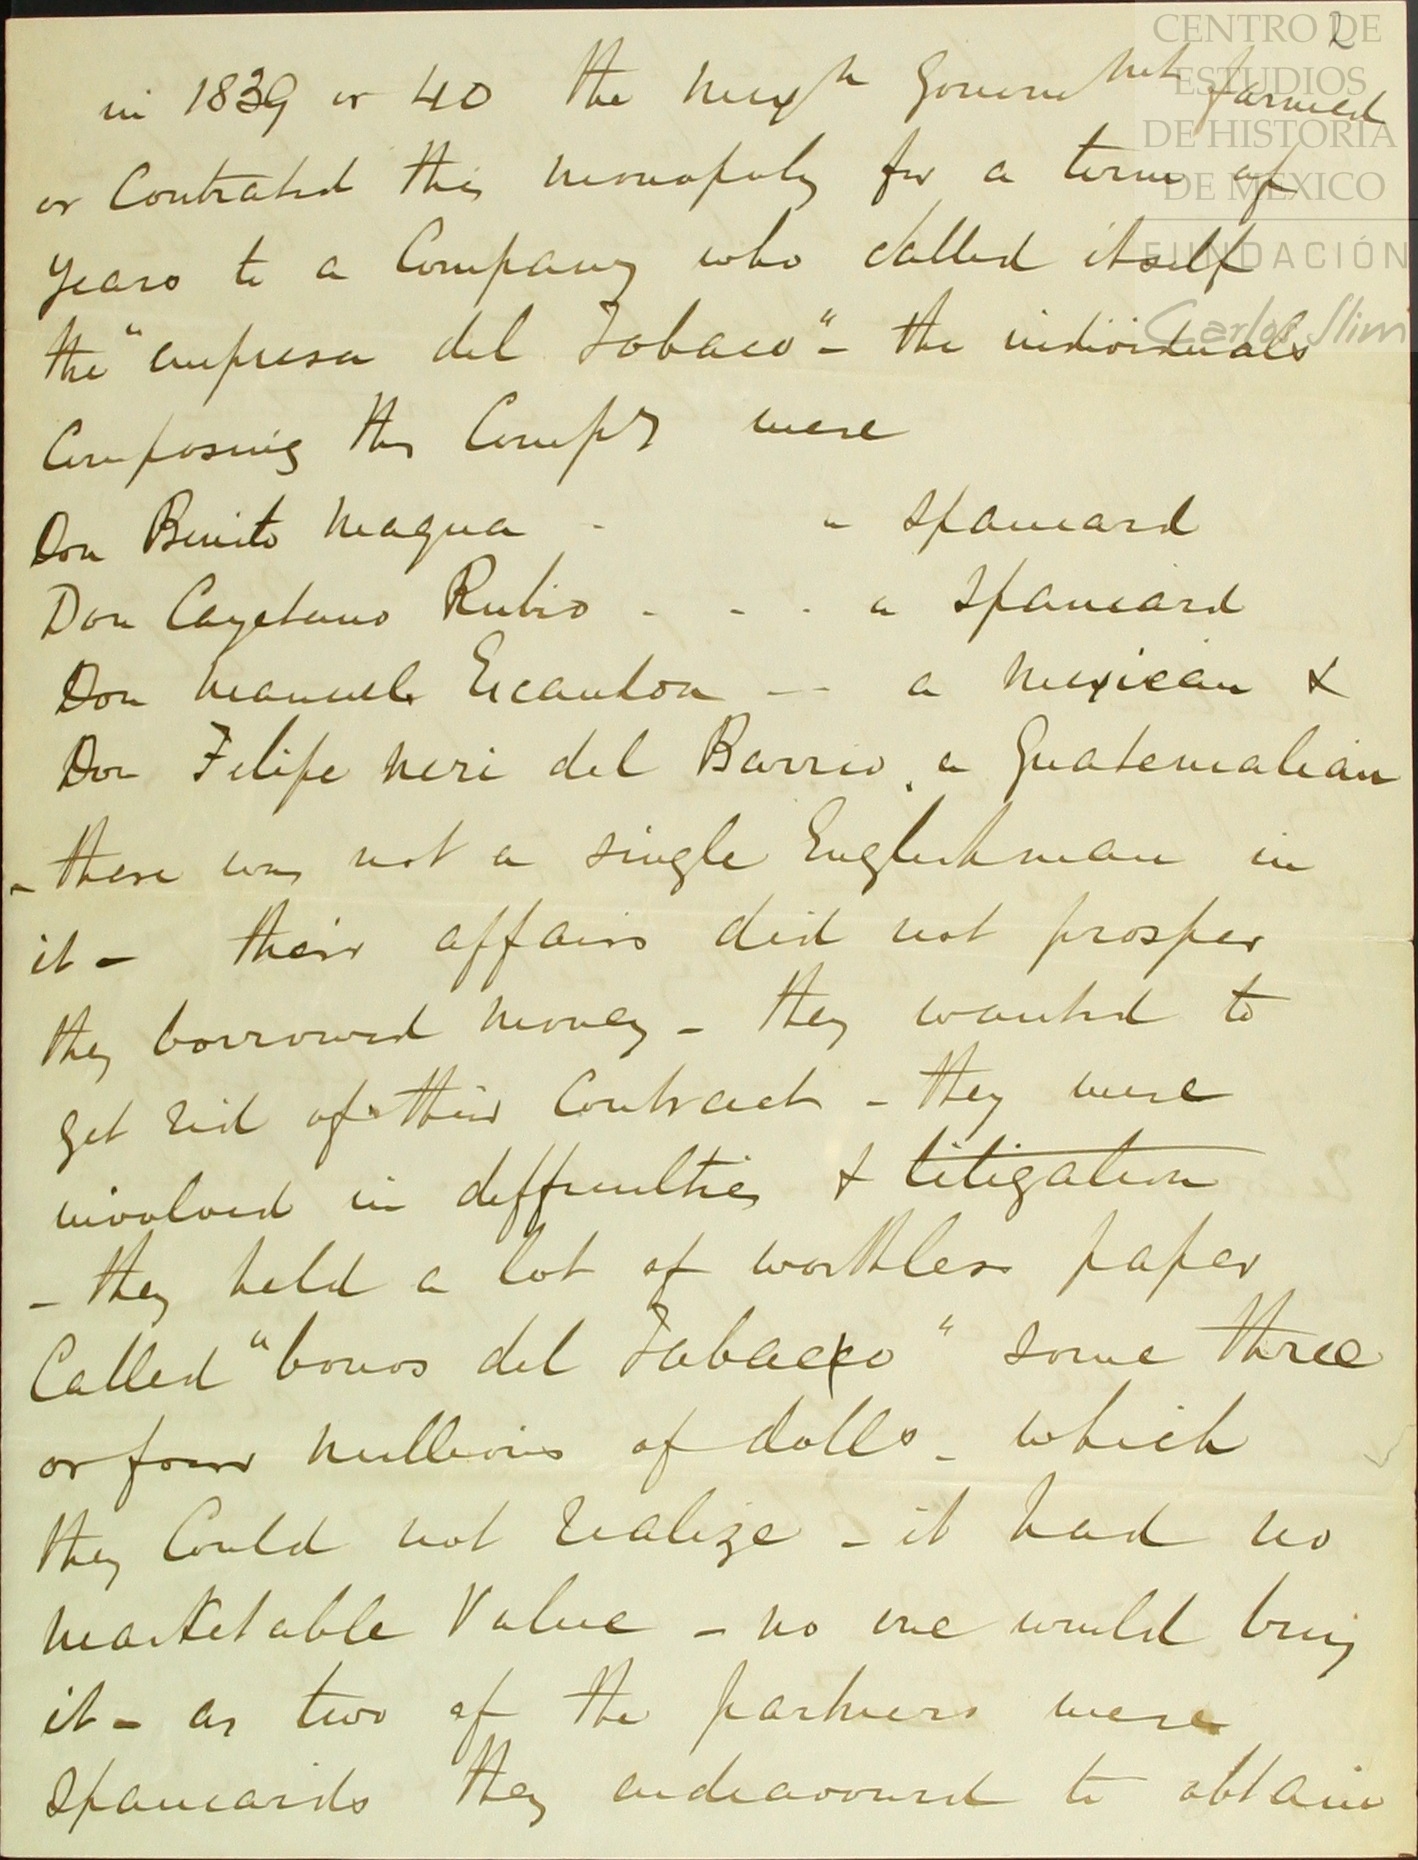 2
CENTRO DE
ESTUDIOS
DE HISTORIA
DE MEXICO
FUNDACIÓN
Carlos Slim
in 1839 or 40 the Mexn Governmnt farmed
or Contrated this monopoly for a term of
years to a Company who called itself
the "empresa del Tobaco" - the individuals
Composing this Compy were
Don Benito Maqua - a Spaniard
Don Cayetano Rubio - - - a Spaniard
Don Manuel Escandon -- a Mexican &
Don Felipe Neri del Barrio, a Guatemalian
- there was not a single Englishman in
it - their affairs did not prosper
they borrowed money - they wanted to
get rid of their Contract - they were
involved in diffiulties & litigation
- they held a lot of worthless paper
Called "bonos del Tabaco" some three
or four millions of dolls - which
they Could not realize - it had no
marketable Value - no one would buy
it - as two of the partners were
Spaniards they endeavoured to obtain